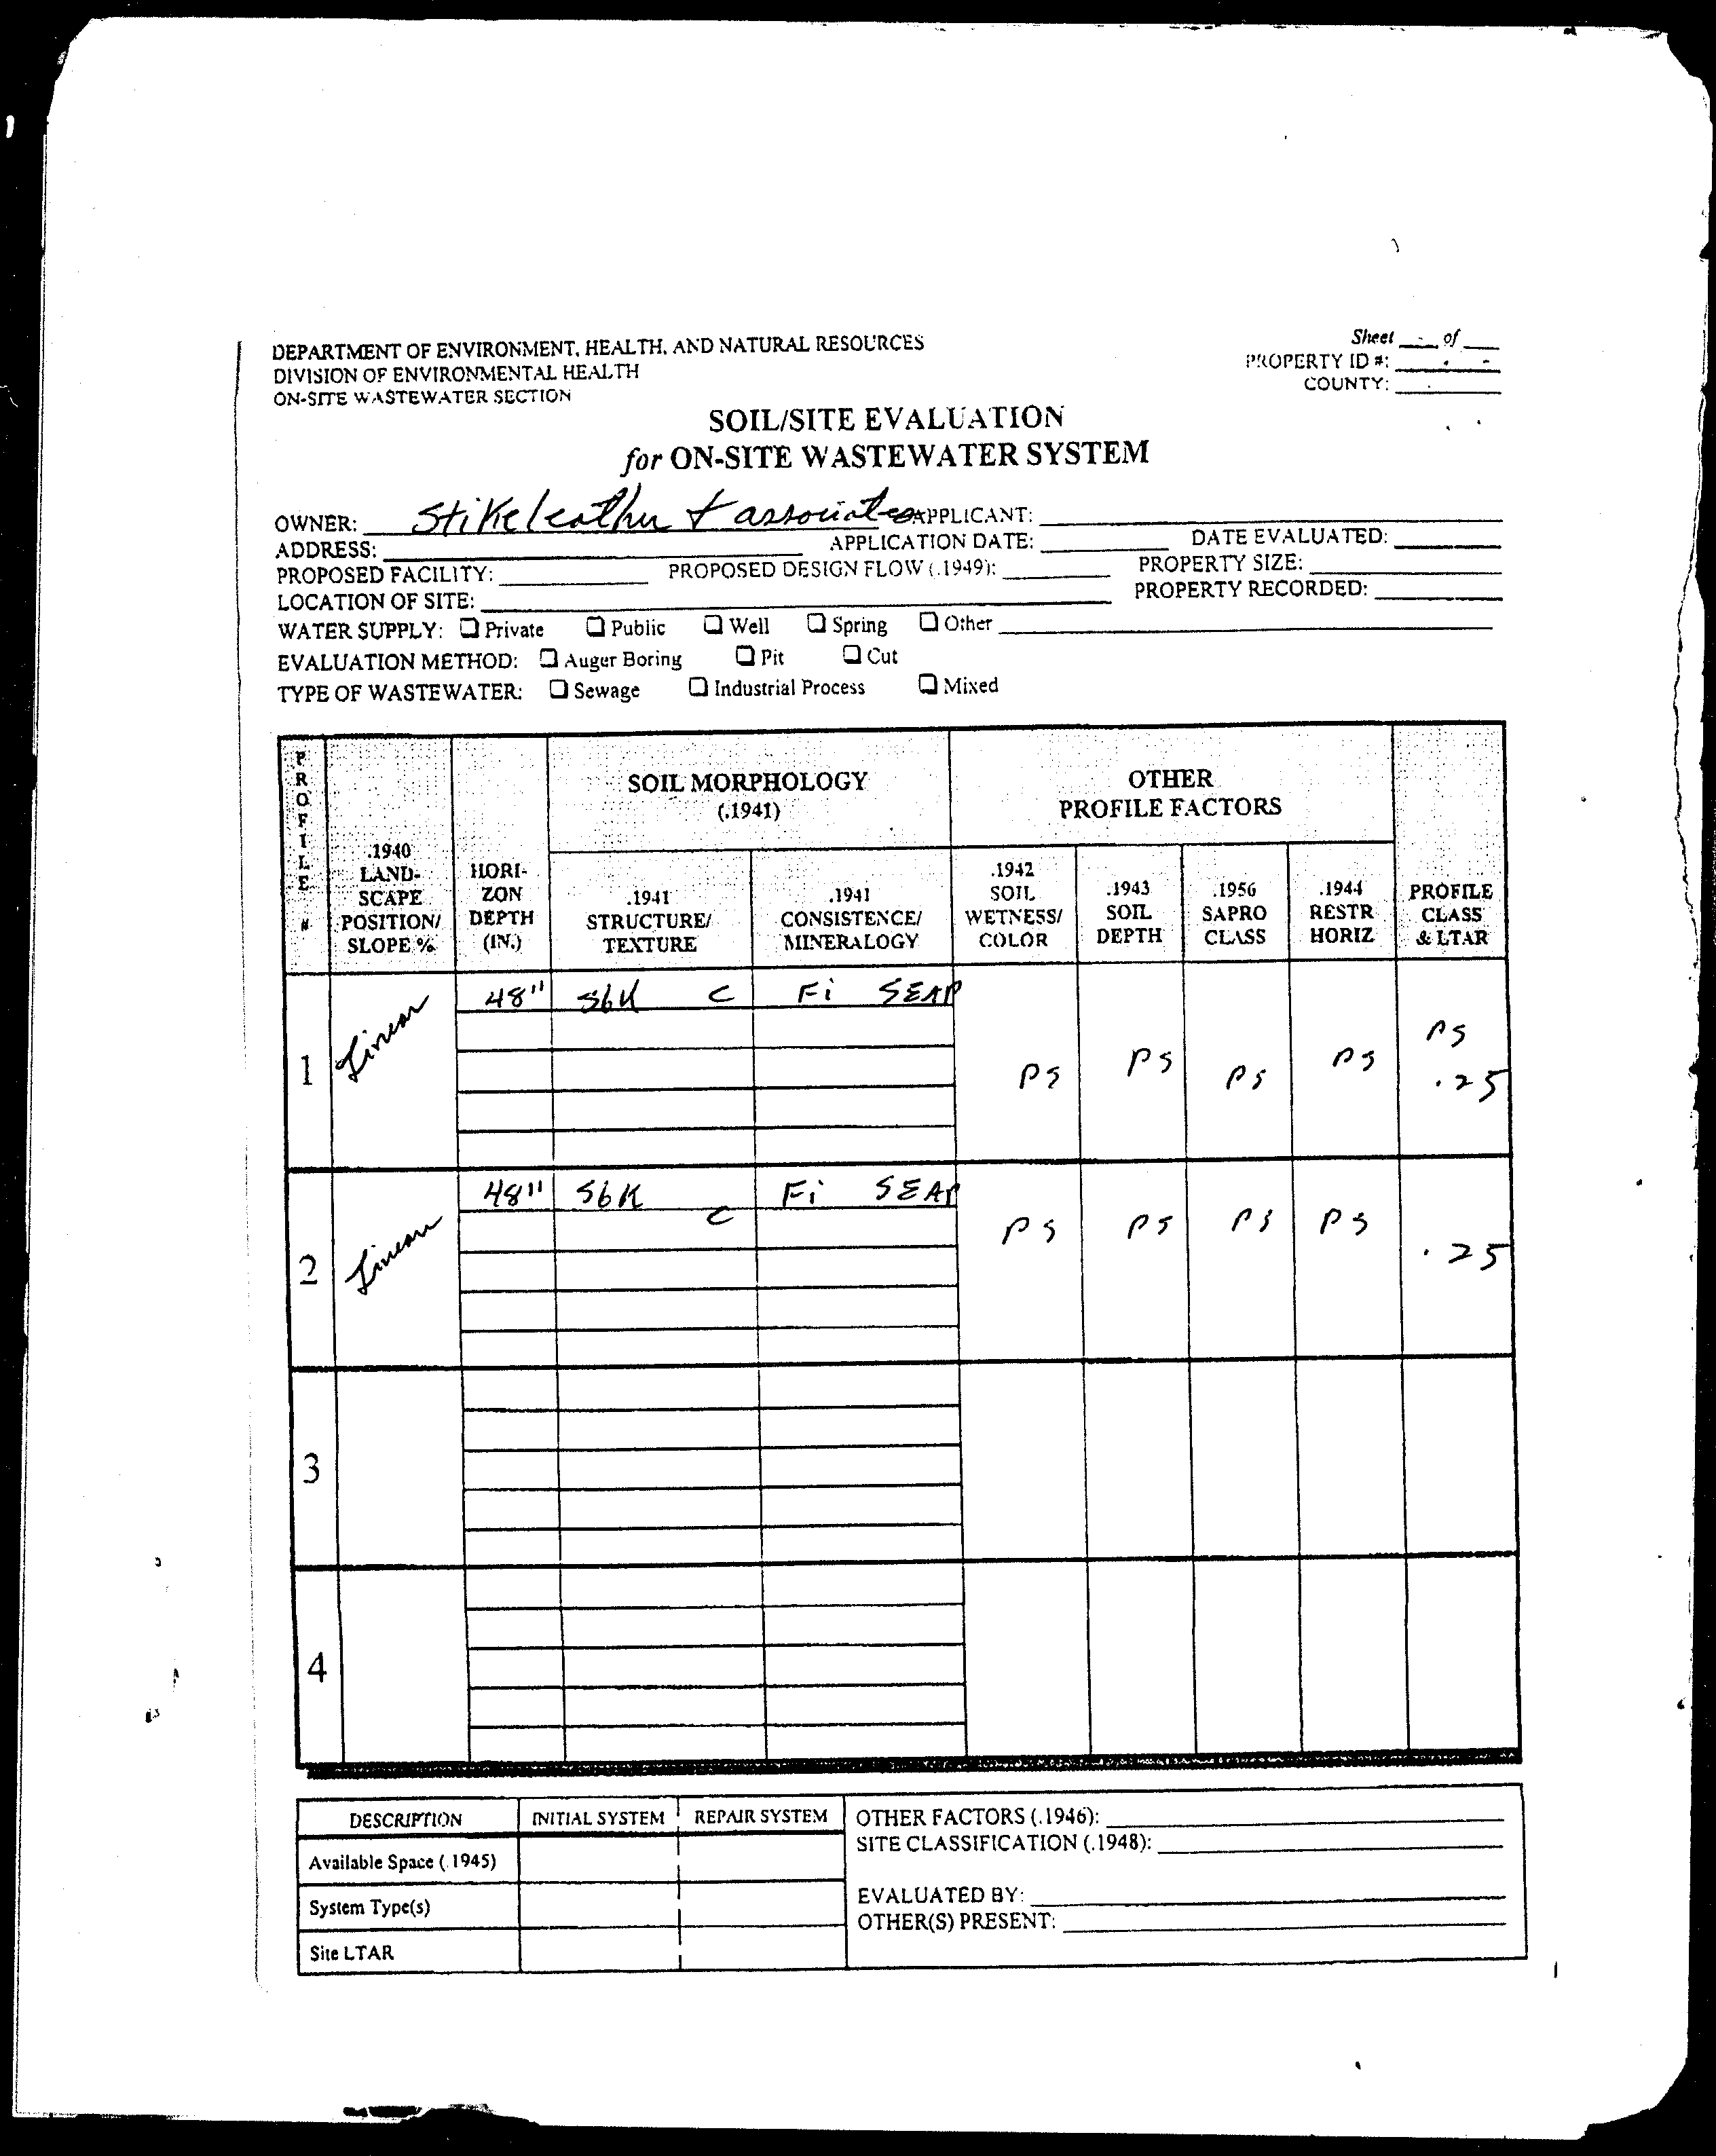 DEPARTMENT OF ENVIRONMENT, HEALTH, AND NATURAL RESOURCES
DIVISION OF ENVIRONMENTAL HEALTH
ON-SITE WASTEWATER SECTION
Sheet ___ of ___
PROPERTY ID #: ______
COUNTY: ______
SOIL/SITE EVALUATION
for ON-SITE WASTEWATER SYSTEM
OWNER: Stikeleather & associates APPLICANT: ______
ADDRESS: ______ APPLICATION DATE: ______ DATE EVALUATED: ______
PROPOSED FACILITY: ______ PROPOSED DESIGN FLOW (.1949): ______ PROPERTY SIZE: ______
LOCATION OF SITE: ______ PROPERTY RECORDED: ______
WATER SUPPLY: ☐ Private ☐ Public ☐ Well ☐ Spring ☐ Other ______
EVALUATION METHOD: ☐ Auger Boring ☐ Pit ☐ Cut
TYPE OF WASTEWATER: ☐ Sewage ☐ Industrial Process ☐ Mixed
PROFILE #
.1940 LAND-SCAPE POSITION/ SLOPE %
HORI-ZON DEPTH (IN.)
SOIL MORPHOLOGY (.1941)
.1941 STRUCTURE/ TEXTURE
.1941 CONSISTENCE/ MINERALOGY
OTHER PROFILE FACTORS
.1942 SOIL WETNESS/ COLOR
.1943 SOIL DEPTH
.1956 SAPRO CLASS
.1944 RESTR HORIZ
PROFILE CLASS & LTAR
1 Linear 48" sbk c Fi SEXP PS PS PS PS PS .25
2 Linear 48" sbk c Fi SEXP PS PS PS PS .25
3
4
DESCRIPTION INITIAL SYSTEM REPAIR SYSTEM
Available Space (.1945)
System Type(s)
Site LTAR
OTHER FACTORS (.1946): ______
SITE CLASSIFICATION (.1948): ______
EVALUATED BY: ______
OTHER(S) PRESENT: ______